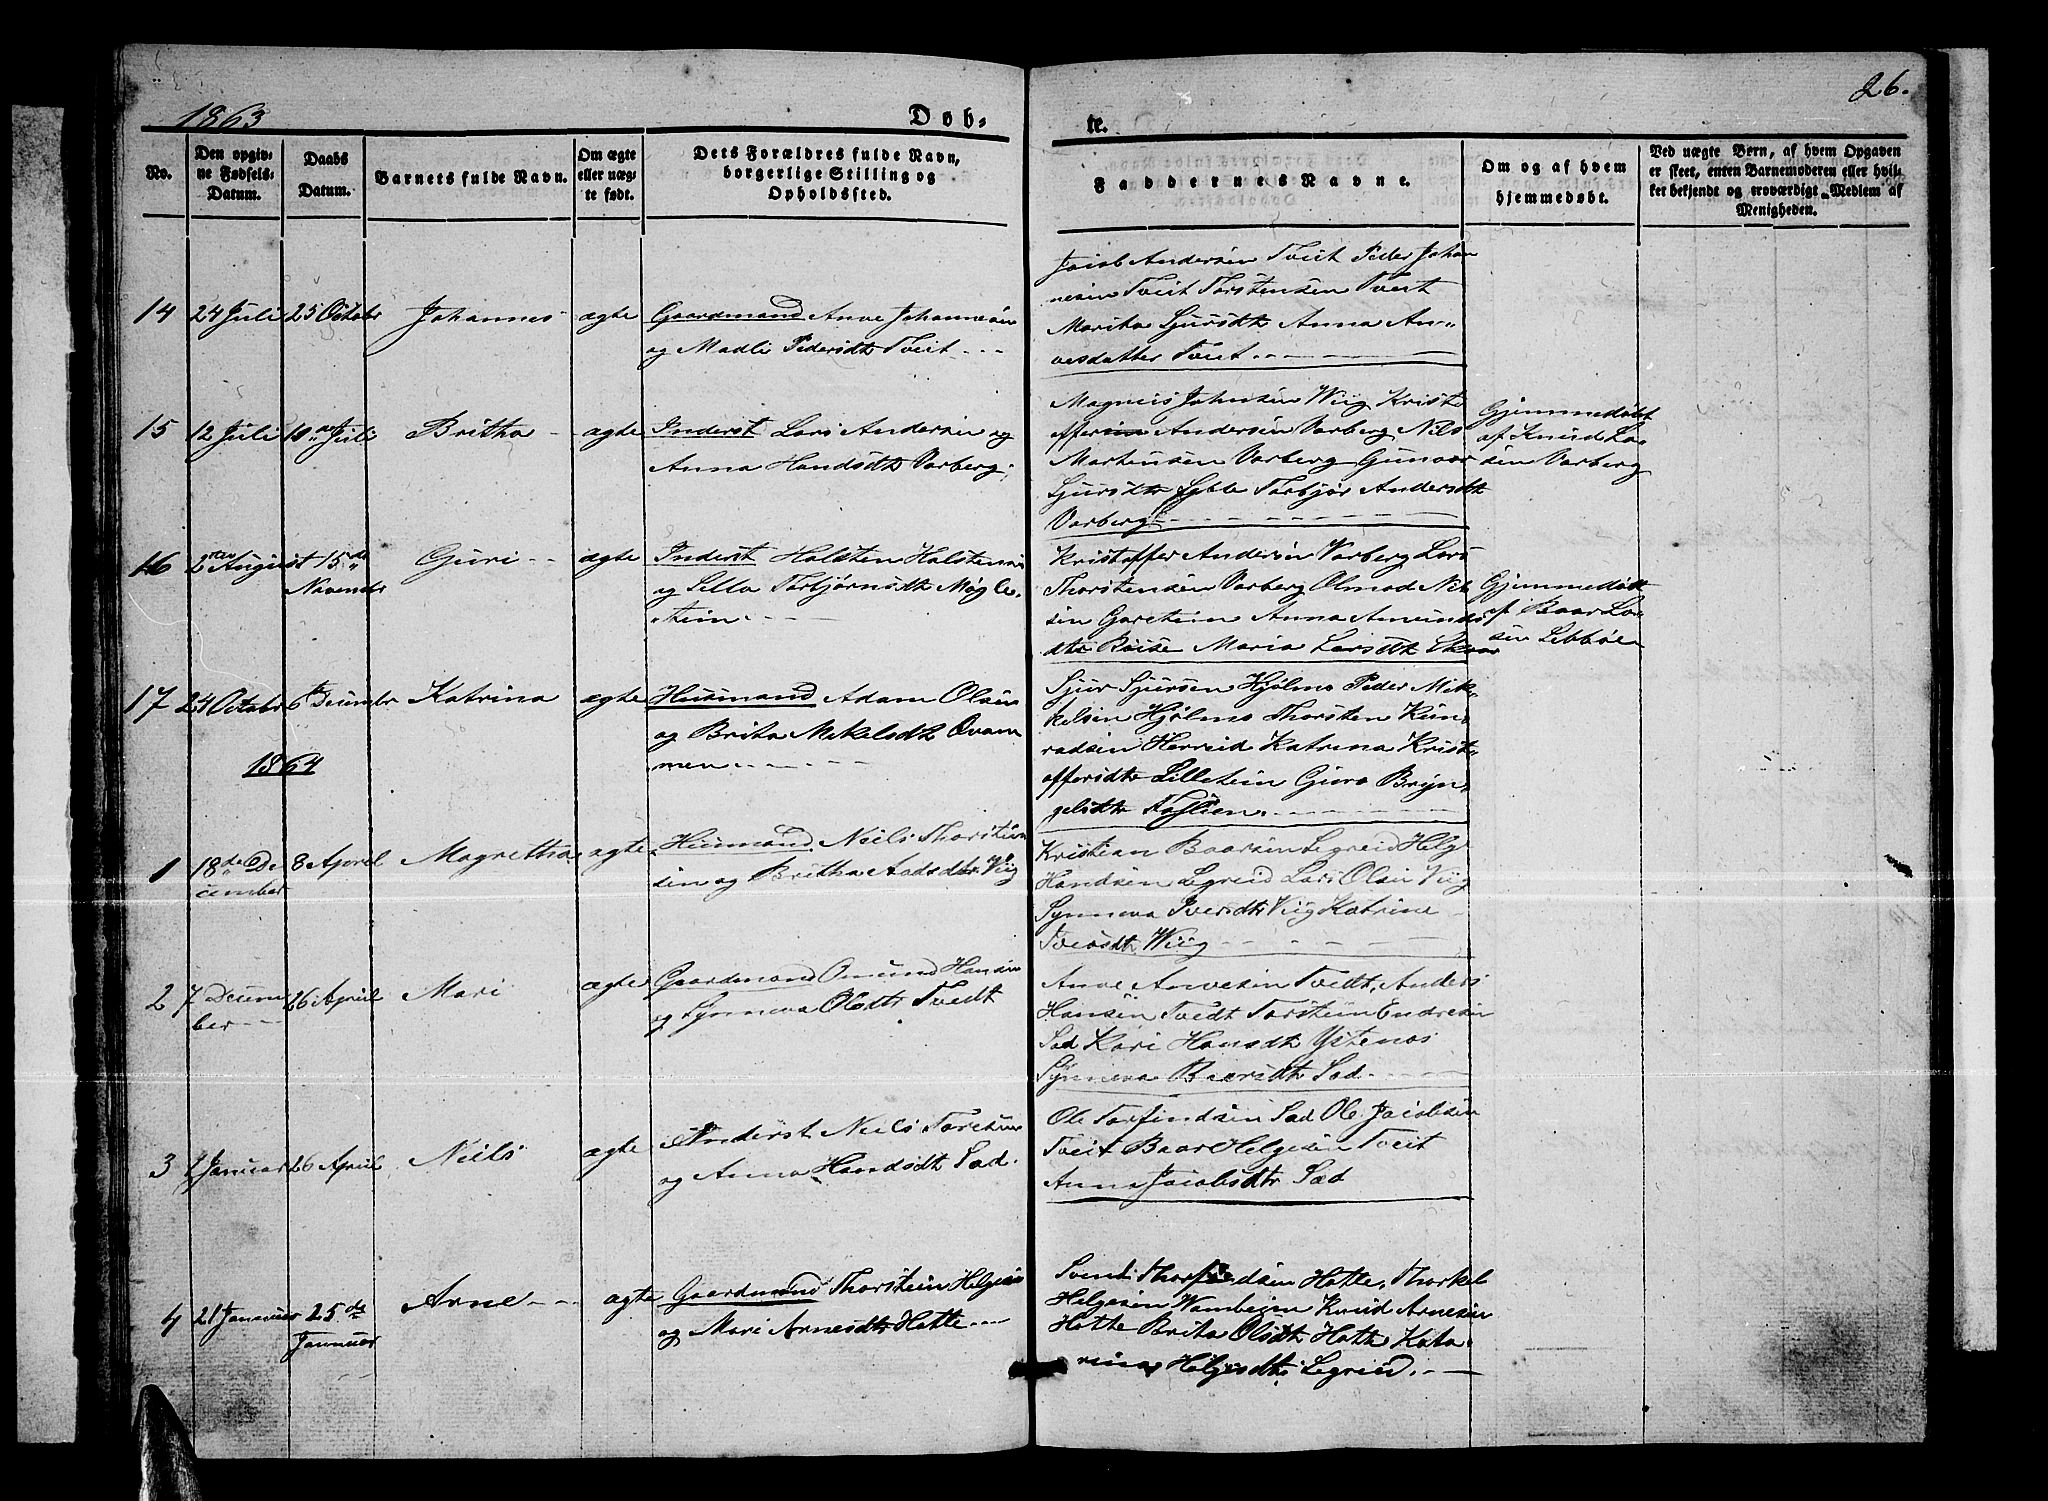 1863
Døb-
te.
26.
No.
Den opgiv-
ne Fødsels-
Datum.
Daabs
Datum.
Barnets fulde Navn.
Om ægte
eller uæg-
te født.
Dets Forældres fulde Navn,
borgerlige Stilling og
Opholdssted.
Faddernes Navne.
Om og af hvem
hjemmedøbt.
Ved uægte Børn, af hvem Opgaven
er skeet, enten Barnemoderen eller hvil-
ket bekjendt og troværdigt Medlem af
Menigheden.
14 24 Juli 25 Octobr Johannes ægte Gaardmand Anve Johannesen
og Madli Pedersdtr Tveit
Jacob Andersen Tveit Peder Johan
nesen Tveit Torstensen Tveit
Marita Sjursdtr Anna An-
vesdatter Tveit
15 12 Juli Juli Britha ægte Inderst Lars Andersen og
Anna Handsdtr Varberg
Magneis Johnsen Wiig Kristo
ffer Andersen Varberg Nils
Martensen Varberg Gunvor
Sjursdtr Torbjør Andersdtr
Varberg
Hjemmedøbt
af Knud Lar
sen Varberg
16 2 August 15de
Novembr
Guri ægte Inderst Halsten Halstensen
og Torbjørnsdtr Mögle-
tun
Kristoffer Andersen Varberg Lars
Thorstensen Varberg Olmod Nil
sen Garetun Anna Amunds
dtr Maria Larsdtr
Hjemmedøbt
af Baar Lar
sen
17 24 Octobr 6 Decembr Katrina ægte Huusmand Adam Olsen
og Brita Mekelsdtr Qvam
men
Sjur Sjursen Hjølmo Peder Mik-
kelsen Hjølmo Thorsten Kon-
radsen Herreid Katrina Krist-
offersdtr Lilletun Gjuro Bryn-
gelsdtr Fosslien
1864
1 18de De
cember
8 April Magretha ægte Huusmand Niels Thorstein
sen og Britha Aadsdtr Viig
Kristian Baarsen Legreid Helg
Handsen Legreid Lars Olsen Viig
Synneva Iversdtr Viig Katrine
Iversdtr Wiig
2 7 Decem
ber
26 April Mari ægte Gaardmand Omund Hansen
og Synneva Olsdtr Tvedt
Anve Anvesen Tvedt, Anders
Hansen Tvedt Torstein Endresen
Sæd Kari Hansdtr Ystenæs
Synneva Baarsdtr Sæd
3 1 Januar 26 April Niels ægte Inderst Niels Toresen
og Anna Handsdtr Sæd.
Ole Torfindsen Sæd Ole Jacobsen
Tveit Baar Helgesen Tveit
Anna Jacobsdtr Sæd
4 21 Januar 25de
Januar
Arne ægte Gaardmand Thorstein Helgesen
og Mari Arnesdtr Hatle
Svend Thorfindsen Hatle, Thorkel
Helgesen Knud Arnesen
Hatle Brita Olsdtr Hatle Kata-
rina Helgesdtr Legreid.